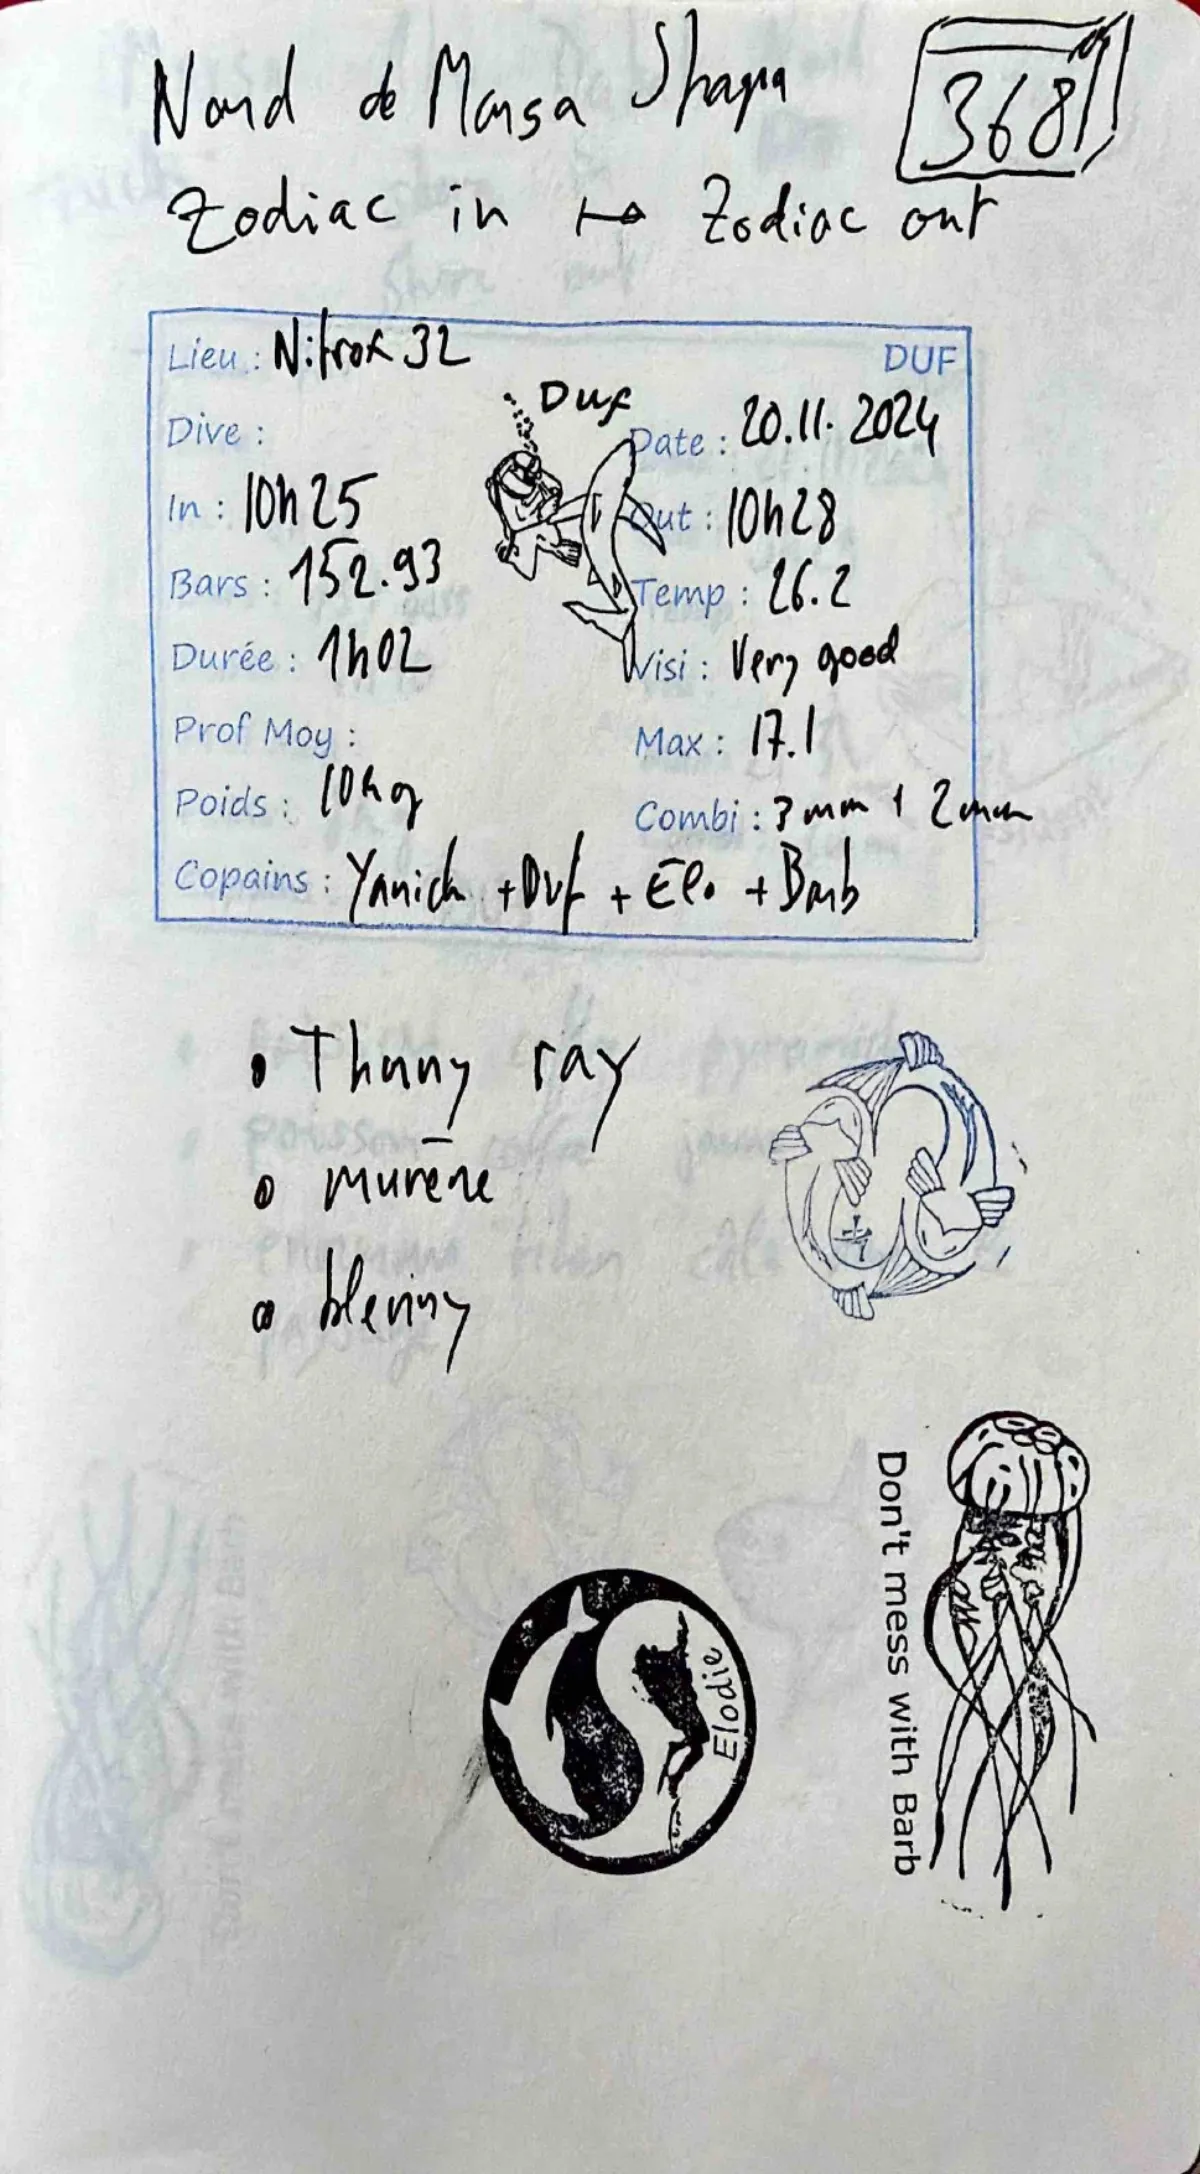 Nord de Marsa Shagra
368
Zodiac in → Zodiac out
Lieu : Nitrox 32 DUF
Duf
Dive : Date : 20.11.2024
In : 10h25 Out : 10h28
Bars : 152.93 Temp : 26.2
Durée : 1h02 Visi : Very good
Prof Moy : Max : 17.1
Poids : 10kg Combi : 3mm + 2mm
Copains : Yanick + Duf + Elo + Barb
• Thunny ray
• murène
• blenny
Don't mess with Barb
Elodie